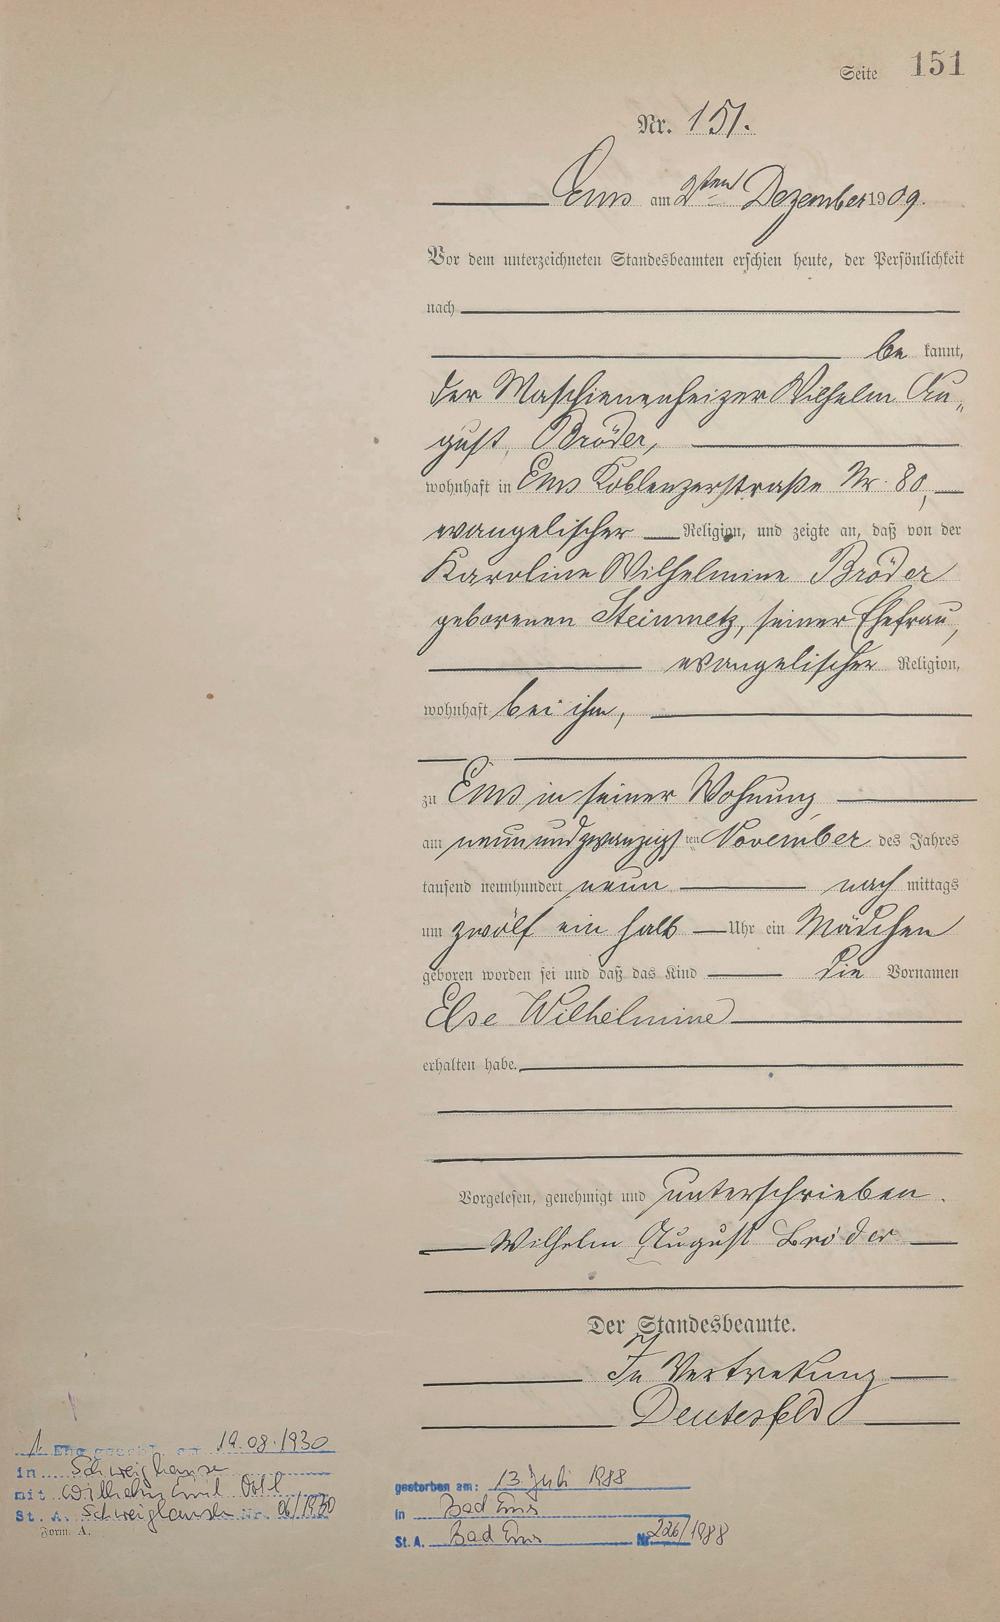 Seite 151
Nr. 151.
Ems am 2ten Dezember 1909.
Vor dem unterzeichneten Standesbeamten erschien heute, der Persönlichkeit
nach
be kannt,
der Maschienenheizer Wilhelm Au„
gust, Bröder,
wohnhaft in Ems Koblenzerstraße Nr. 80,
evangelischer Religion, und zeigte an, daß von der
Karoline Wilhelmine Bröder
geborenen Steinmetz, seiner Ehefrau,
evangelischer Religion,
wohnhaft bei ihm,
zu Ems in seiner Wohnung
am neunundzwanzigsten November des Jahres
tausend neunhundert neun nach mittags
um zwölf ein halb Uhr ein Mädchen
geboren worden sei und daß das Kind die Vornamen
Else Wilhelmine
erhalten habe.
Vorgelesen, genehmigt und unterschrieben.
Wilhelm August Bröder
Der Standesbeamte.
In Vertretung
Deutesfeld
1. Ehegeschl. am 19.08.1930
in Schweighausen
mit Wilhelm Emil
St. A. Schweighausen Nr. 06/1930
Form. A.
gestorben am: 13. Juli 1988
in Bad Ems
St. A. Bad Ems Nr. 226/1988